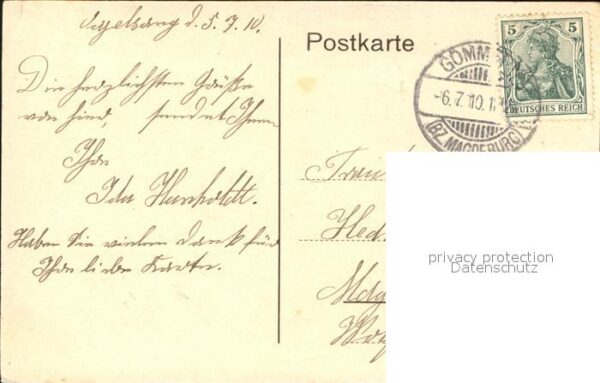 Vogelsang d. 5. 7. 10.
Postkarte
Die herzlichsten Grüße
von hier, sendet Ihnen
Ihre
Ida Humboldt.
Haben Sie vielen Dank für
Ihre liebe Karte.
5 5
DEUTSCHES REICH
GOMM
-6.7.10.
(BZ. MAGDEBURG)
Fräu
Hed
Mdg
privacy protection
Datenschutz